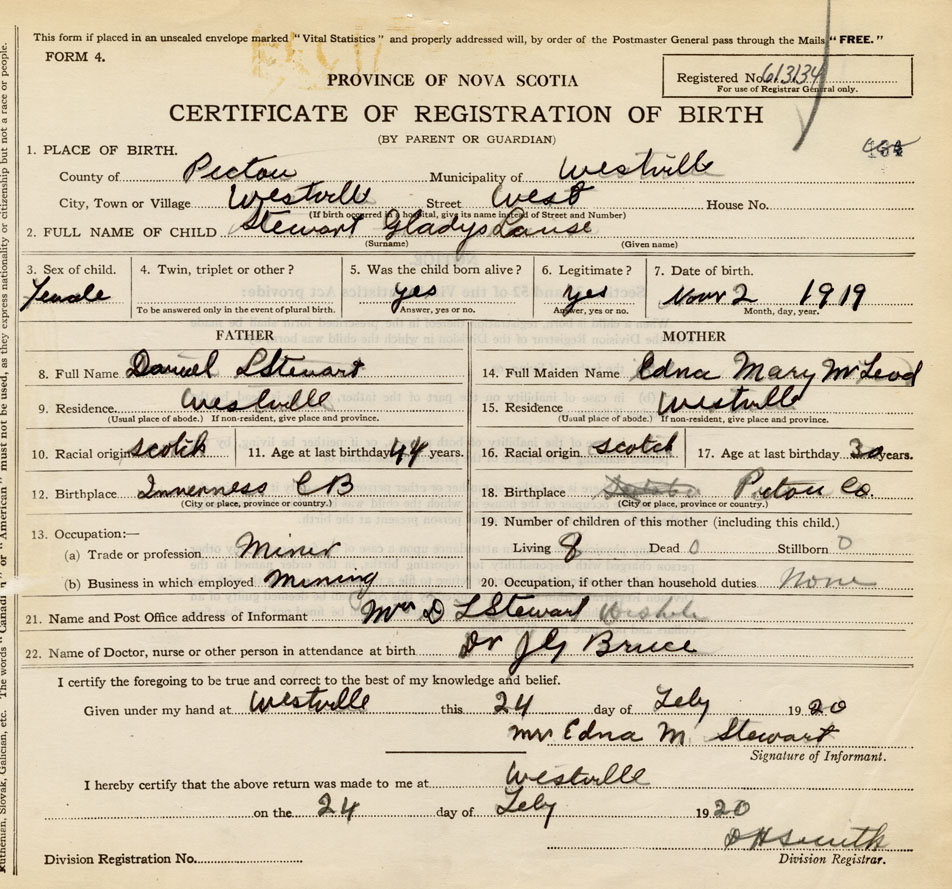 This form if placed in an unsealed envelope marked "Vital Statistics" and properly addressed will, by order of the Postmaster General pass through the Mails "FREE."
FORM 4.
PROVINCE OF NOVA SCOTIA
Registered No. 613134
For use of Registrar General only.
CERTIFICATE OF REGISTRATION OF BIRTH
(BY PARENT OR GUARDIAN)
1. PLACE OF BIRTH.
County of Pictou Municipality of Westville
City, Town or Village Westville Street West House No.
(If birth occurred in a hospital, give its name instead of Street and Number)
2. FULL NAME OF CHILD Stewart Gladys
(Surname) (Given name)
3. Sex of child. 4. Twin, triplet or other? 5. Was the child born alive? 6. Legitimate? 7. Date of birth.
Female yes yes Novr 2 1919
To be answered only in the event of plural birth. Answer, yes or no. Answer, yes or no. Month, day, year.
FATHER MOTHER
8. Full Name Daniel L Stewart 14. Full Maiden Name Edna Mary McLeod
9. Residence Westville 15. Residence Westville
(Usual place of abode.) If non-resident, give place and province. (Usual place of abode.) If non-resident, give place and province.
10. Racial origin scotch 11. Age at last birthday 44 years. 16. Racial origin scotch 17. Age at last birthday 30 years.
12. Birthplace Inverness CB 18. Birthplace Pictou Co.
(City or place, province or country.) (City or place, province or country.)
19. Number of children of this mother (including this child.)
13. Occupation:—
(a) Trade or profession Miner Living 8 Dead 0 Stillborn 0
(b) Business in which employed Mining 20. Occupation, if other than household duties None
21. Name and Post Office address of Informant Mrs D L Stewart Westville
22. Name of Doctor, nurse or other person in attendance at birth Dr J G Bruce
I certify the foregoing to be true and correct to the best of my knowledge and belief.
Given under my hand at Westville this 24 day of Feby 1920
Mrs Edna M. Stewart
Signature of Informant.
I hereby certify that the above return was made to me at Westville
on the 24 day of Feby 1920
D H Smith
Division Registrar.
Division Registration No.